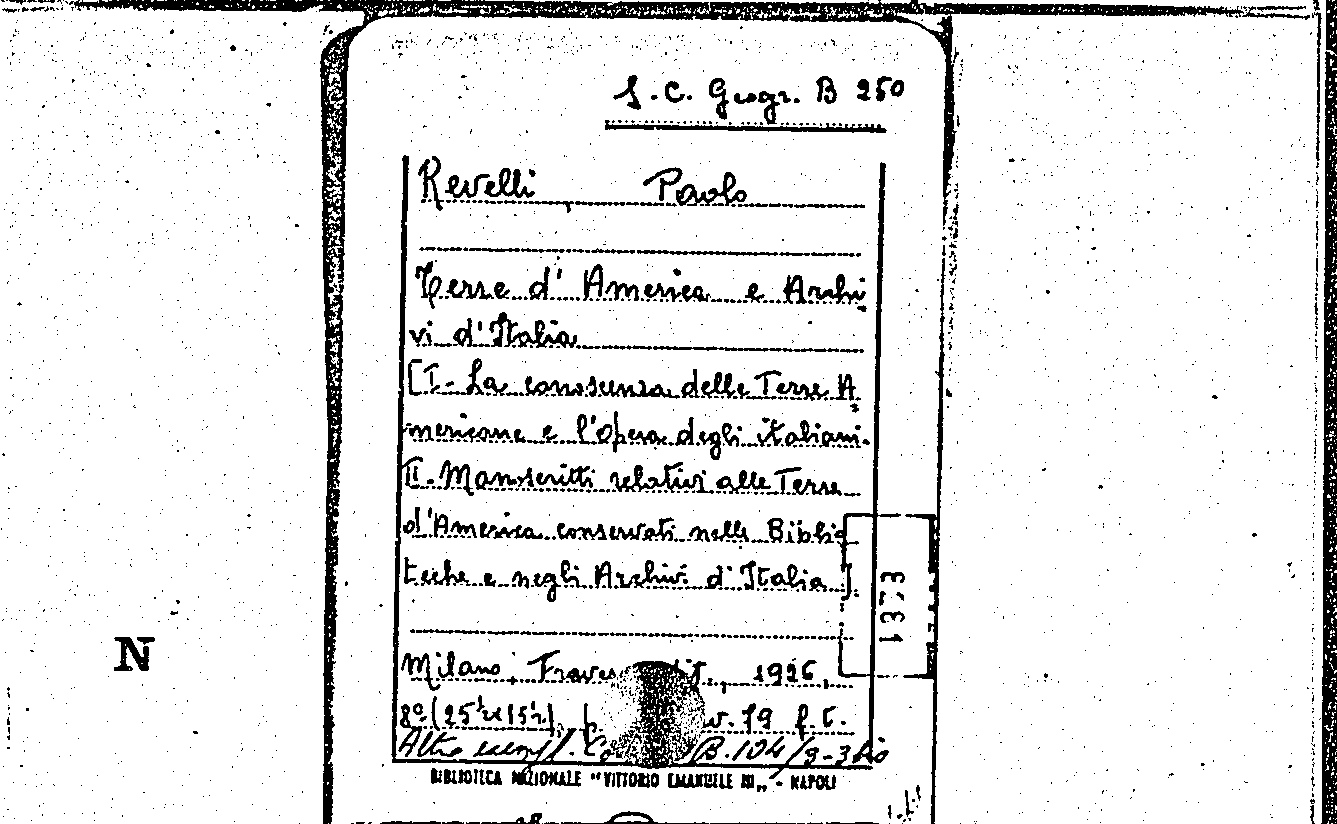 S. C. Geogr. B 250
Revelli, Paolo
Terre d'America e Archi
vi d'Italia
[I- La conoscenza delle Terre A
mericane e l'opera degli italiani.
II. Manoscritti relativi alle Terre
d'America conservati nelle Biblio
teche e negli Archivi d'Italia].
Milano, 1926,
8º (25½x15½), 79 f.t.
Altro esempl. B.104/3-3 bis
BIBLIOTECA NAZIONALE "VITTORIO EMANUELE III„ - NAPOLI
N